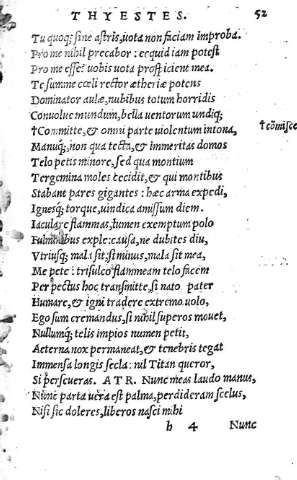 THYESTES. 52
Tu quoq; sine astris, uota non faciam improba.
Pro me nihil precabor: ecquid iam potest
Pro me esse? uobis uota prospicient mea.
Te summe cœli rector ætheriæ potens
Dominator aulæ, nubibus totum horridis
Conuolue mundum, bella uentorum undiq;
†Committe, & omni parte uiolentum intona, †cõmisce
Manuq; non qua tecta, & immeritas domos
Telo petis minore, sed qua montium
Tergemina moles cecidit, & qui montibus
Stabant pares gigantes: hæc arma expedi,
Ignesq; torque, uindica amissum diem.
Iaculare flammas, lumen exemptum polo
Fulminibus exple: causa, ne dubites diu,
Vtriusq; mala sit: si minus, mala sit mea,
Me pete: trisulco flammeam telo facem
Per pectus hoc transmitte, si nato pater
Humare, & igni tradere extremo uolo,
Ego sum cremandus, si nihil superos mouet,
Nullumq; telis impios numen petit,
Aeterna nox permaneat, & tenebris tegat
Immensa longis secla: nil Titan queror,
Si perseueras. ATR. Nunc meas laudo manus,
Nũnc parta uera est palma, perdideram scelus,
Nisi sic doleres, liberos nasci mihi
h 4 Nunc